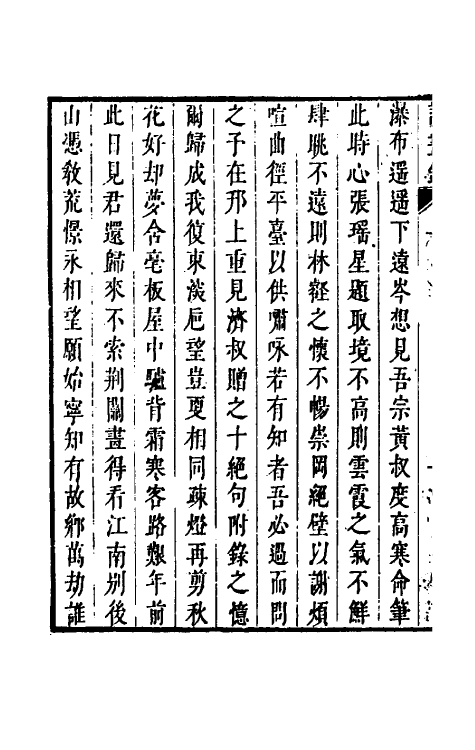 瀑布遥遥下遠岑想見吾宗黃叔度高寒命筆
此時心張瑶星題取境不高則雲霞之氣不鮮
肆眺不遠則林壑之懷不暢崇岡絕壁以謝煩
喧曲徑平臺以供嘯咏若有知者吾必過而問
之子在邗上重見濟叔贈之十絕句附錄之憶
爾歸成我復東淡巵望豈夏相同疎燈再剪秋
花好却夢舍亳板屋中驢背霜寒客路艱年前
此日見君還歸來不索荆關畫得看江南别後
山憑敎荒憬永相望願始寧知有故鄉萬劫誰